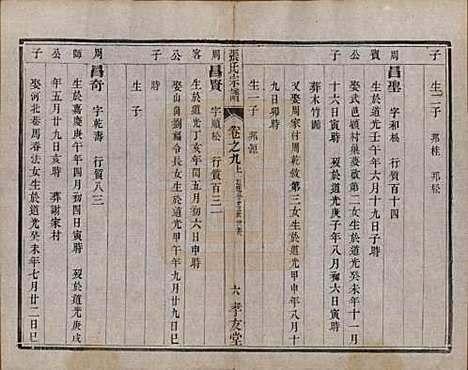 子
生二子 邦桂 邦松
周昌聖 字和松 行質百十四
賓 生於道光壬午年六月十九日子時
公 娶武邑穎村巢慶敬第二女生於道光癸未年十一月
十六日寅時 歿於道光庚子年八月初六日寅時
葬木竹園
又娶周家村周乾敘第三女生於道光甲申年八月十
九日卯時
子
生一子 邦源
張氏宗譜 卷之九上
六 孝友堂
周昌賢 字順松 行質百三一
客 生於道光丁亥年閏五月初六日申時
公 娶山南劉福令長女生於道光甲午年九月廿六日巳
時
子
生 子
周昌奇 字乾壽 行質八三
師 生於嘉慶庚申年四月初四日寅時 歿於道光庚戌
公 年五月廿九日亥時 葬謝家村
娶河北巷馬春法女生於道光癸未年七月廿二日巳